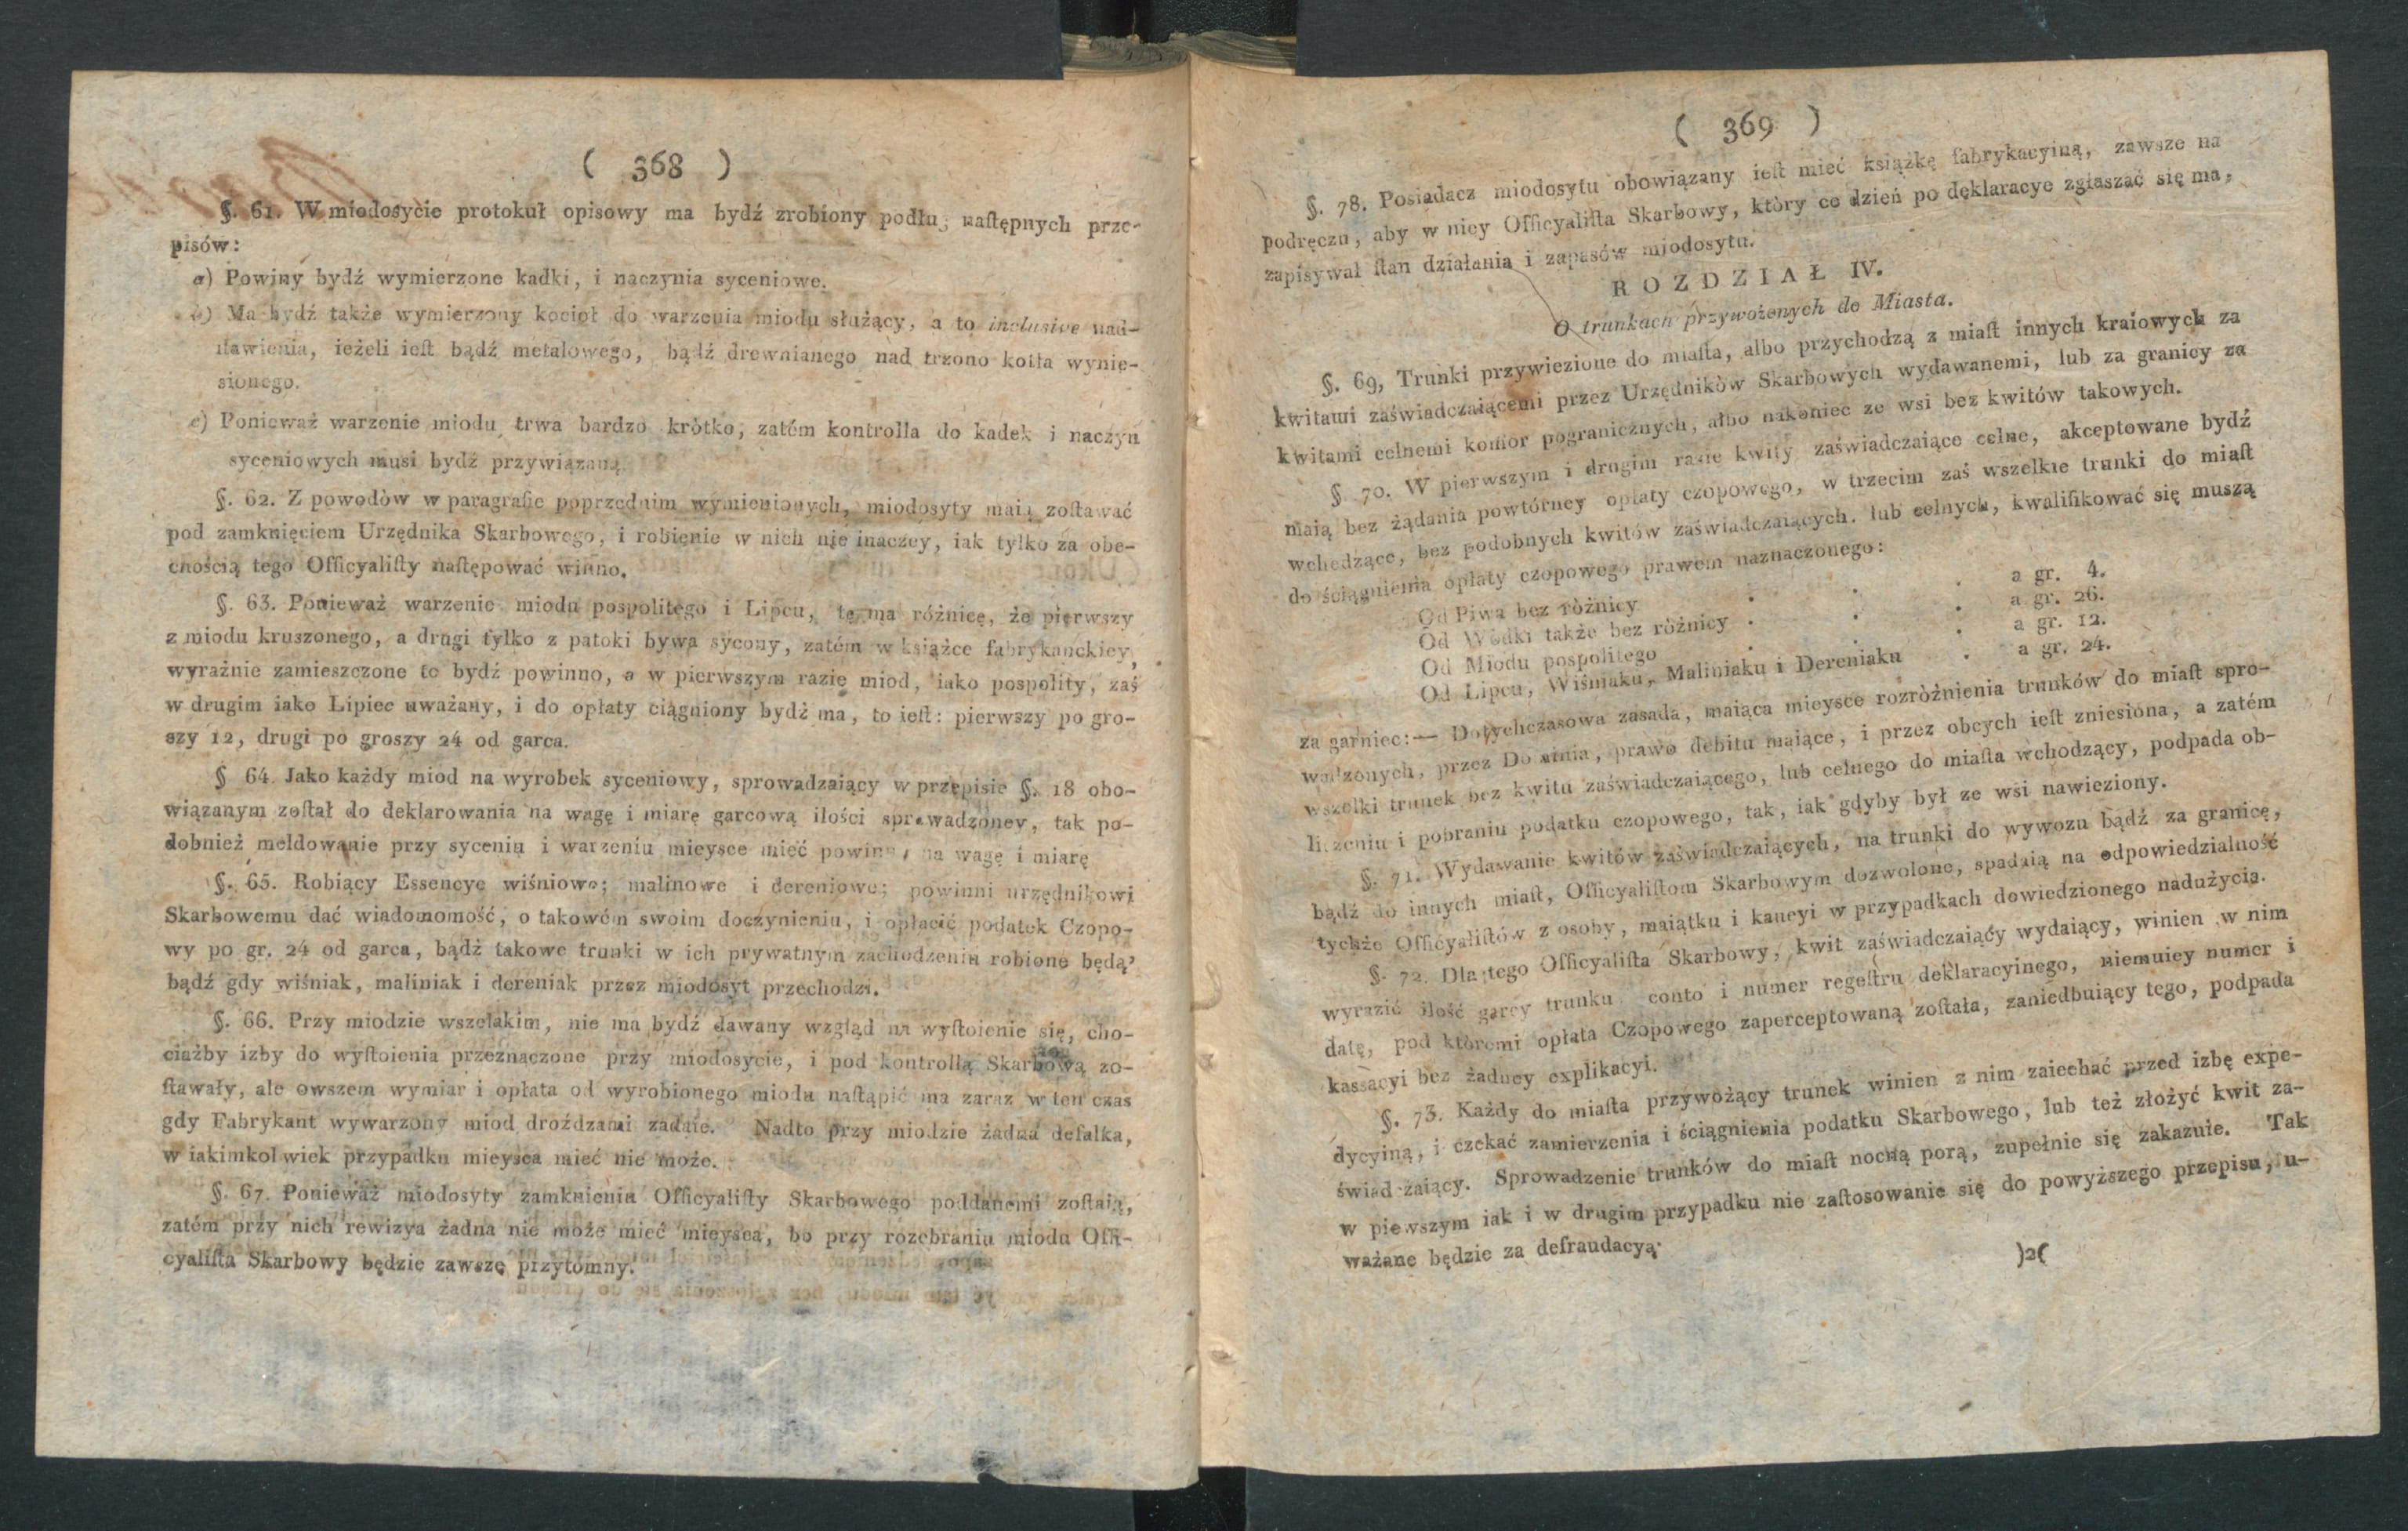 ( 368 )
§. 61. W miodosycie protokuł opisowy ma bydź zrobiony podług naſtępnych prze-
pisów:
a) Powiny bydź wymierzone kadki, i naczynia syceniowe.
b) Ma bydź także wymierzony kocioł do warzenia miodu służący, a to inclusive nad-
ſtawienia, ieżeli ieſt bądź metalowego, bądź drewnianego nad trzono kotła wynie-
sionego.
c) Ponieważ warzenie miodu trwa bardzo krótko, zatém kontrolla do kadek i naczyń
syceniowych musi bydź przywiązaną.
§. 62. Z powodòw w paragrafie poprzednim wymienionych, miodosyty maią zoſtawać
pod zamknięciem Urzędnika Skarbowego, i robienie w nich nie inaczey, iak tylko za obe-
cnością tego Officyaliſty naſtępować winno.
§. 63. Ponieważ warzenie miodu pospolitego i Lipcu, tę ma różnicę, że pierwszy
z miodu kruszonego, a drugi tylko z patoki bywa sycony, zatém w książce fabrykanckiey,
wyraźnie zamieszczone to bydź powinno, a w pierwszym razie miod, iako pospolity, zaś
w drugim iako Lipiec uważany, i do opłaty ciągniony bydź ma, to ieſt: pierwszy po gro-
szy 12, drugi po groszy 24 od garca.
§ 64. Jako każdy miod na wyrobek syceniowy, sprowadzaiący w przepisie §. 18 obo-
wiązanym zoſtał do deklarowania na wagę i miarę garcową ilości sprowadzoney, tak po-
dobnież meldowanie przy syceniu i warzeniu mieysce mieć powinno na wagę i miarę
§. 65. Robiący Essencye wiśniowe; malinowe i dereniowe; powinni urzędnikowi
Skarbowemu dać wiadomomość, o takowém swoim doczynieniu, i opłacić podatek Czopo-
wy po gr. 24 od garca, bądź takowe trunki w ich prywatnym zachodzeniu robione będą,
bądź gdy wiśniak, maliniak i dereniak przez miodosyt przechodzi.
§. 66. Przy miodzie wszelakim, nie ma bydź dawany wzgląd na wyſtoienie się, cho-
ciażby izby do wyſtoienia przeznaczone przy miodosycie, i pod kontrollą Skarbową zo-
ſtawały, ale owszem wymiar i opłata od wyrobionego miodu naſtąpić ma zaraz w ten czas
gdy Fabrykant wywarzony miod droźdzami zadaie. Nadto przy miodzie żadna defalka,
w iakimkolwiek przypadku mieysca mieć nie może.
§. 67. Ponieważ miodosyty zamknieniu Officyaliſty Skarbowego poddanemi zoſtaią,
zatém przy nich rewizya żadna nie może mieć mieysca, bo przy rozebraniu miodu Offi-
cyaliſta Skarbowy będzie zawszę przytomny.
( 369 )
§. 78. Posiadacz miodosytu obowiązany ieſt mieć książkę fabrykacyiną, zawsze na
podręczu, aby w niey Officyaliſta Skarbowy, który co dzień po deklaracye zgłaszać się ma,
zapisywał ſtan działania i zapasów miodosytu.
ROZDZIAŁ IV.
O trunkach przywożonych do Miasta.
§. 69, Trunki przywiezione do miaſta, albo przychodzą z miaſt innych kraiowych za
kwitami zaświadczaiącemi przez Urzędników Skarbowych wydawanemi, lub za granicy za
kwitami celnemi komor pogranicznych, albo nakoniec ze wsi bez kwitów takowych.
§ 70. W pierwszym i drugim razie kwity zaświadczaiące celne, akceptowane bydź
maią bez żądania powtórney opłaty czopowego, w trzecim zaś wszelkie trunki do miaſt
wchodzące, bez podobnych kwitów zaświadczaiących. lub celnych, kwalifikować się muszą
do ściągnienia opłaty czopowego prawem naznaczonego:
Od Piwa bez różnicy . . . a gr. 4.
Od Wódki także bez różnicy . . . a gr. 26.
Od Miodu pospolitego . . . a gr. 12.
Od Lipcu, Wiśniaku, Maliniaku i Dereniaku . a gr. 24.
za garniec:— Dotychczasowa zasada, maiąca mieysce rozróżnienia trunków do miaſt spro-
wadzonych, przez Dominia, prawo debitu maiące, i przez obcych ieſt zniesiona, a zatém
wszelki trunek bez kwitu zaświadczaiącego, lub celnego do miaſta wchodzący, podpada ob-
liczeniu i pobraniu podatku czopowego, tak, iak gdyby był ze wsi nawieziony.
§. 71. Wydawanie kwitów zaświadczaiących, na trunki do wywozu bądź za granicę,
bądź do innych miaſt, Officyaliſtom Skarbowym dozwolone, spadaią na odpowiedzialność
tychże Officyaliſtów z osoby, maiątku i kaucyi w przypadkach dowiedzionego nadużycia.
§. 72. Dla tego Officyaliſta Skarbowy, kwit zaświadczaiący wydaiący, winien w nim
wyrazić ilość garcy trunku conto i numer regeſtru deklaracyinego, niemuiey numer i
datę, pod któremi opłata Czopowego zaperceptowaną zoſtała, zaniedbuiący tego, podpada
kassacyi bez żadney explikacyi.
§. 73. Każdy do miaſta przywożący trunek winien z nim zaiechać przed izbę expe-
dycyiną, i czekać zamierzenia i ściągnienia podatku Skarbowego, lub też złożyć kwit za-
świadczaiący. Sprowadzenie trunków do miaſt nocną porą, zupełnie się zakazuie. Tak
w piewszym iak i w drugim przypadku nie zaſtosowanie się do powyższego przepisu, u-
ważane będzie za defraudacyą.
)2(